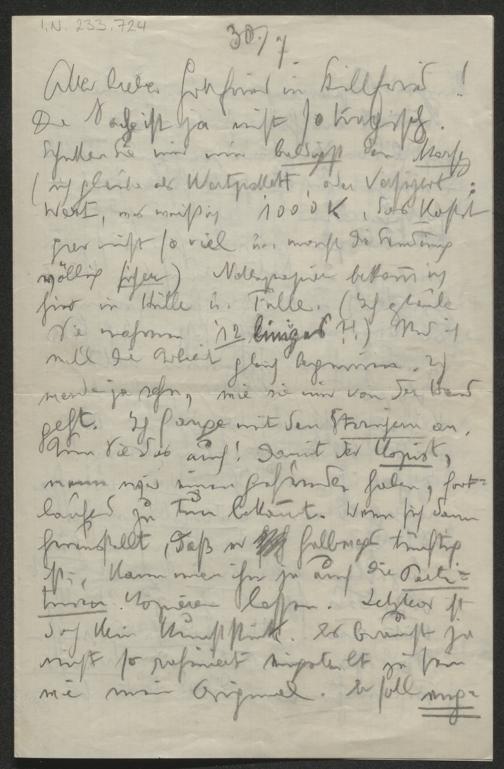 I.N. 233.724
30/7
Aber lieber Gottfried in Stillfried!
Die Sache ist ja nicht so tragisch.
Schicken Sie mir nur den Marsch
(ich glaube als Wertpaket, oder
Wert, nur 1000 K, das kostet
gar nicht so viel u. macht die Sendung
völlig sicher) Notenpapier bekam ich
hier in Hülle u. Fülle. (Ich glaube
Sie nahmen 12 liniges?!) Und ich
will die Arbeit gleich beginnen. Ich
werde ja sehn, wie sie mir von der Hand
geht. Ich fange mit den Stimmen an.
Tun Sie das auch! Damit der Kopist,
wenn wir einen gefunden haben, fort-
laufend zu tun bekommt. Wenn sich dann
herausstellt, daß er halbwegs tüchtig
ist, kann man ihn ja auch die Parti-
turen kopieren lassen. Letzteres ist
doch kein Kunststück. Es braucht ja
nicht so raffiniert eingeteilt zu sein
wie mein Original. Er soll